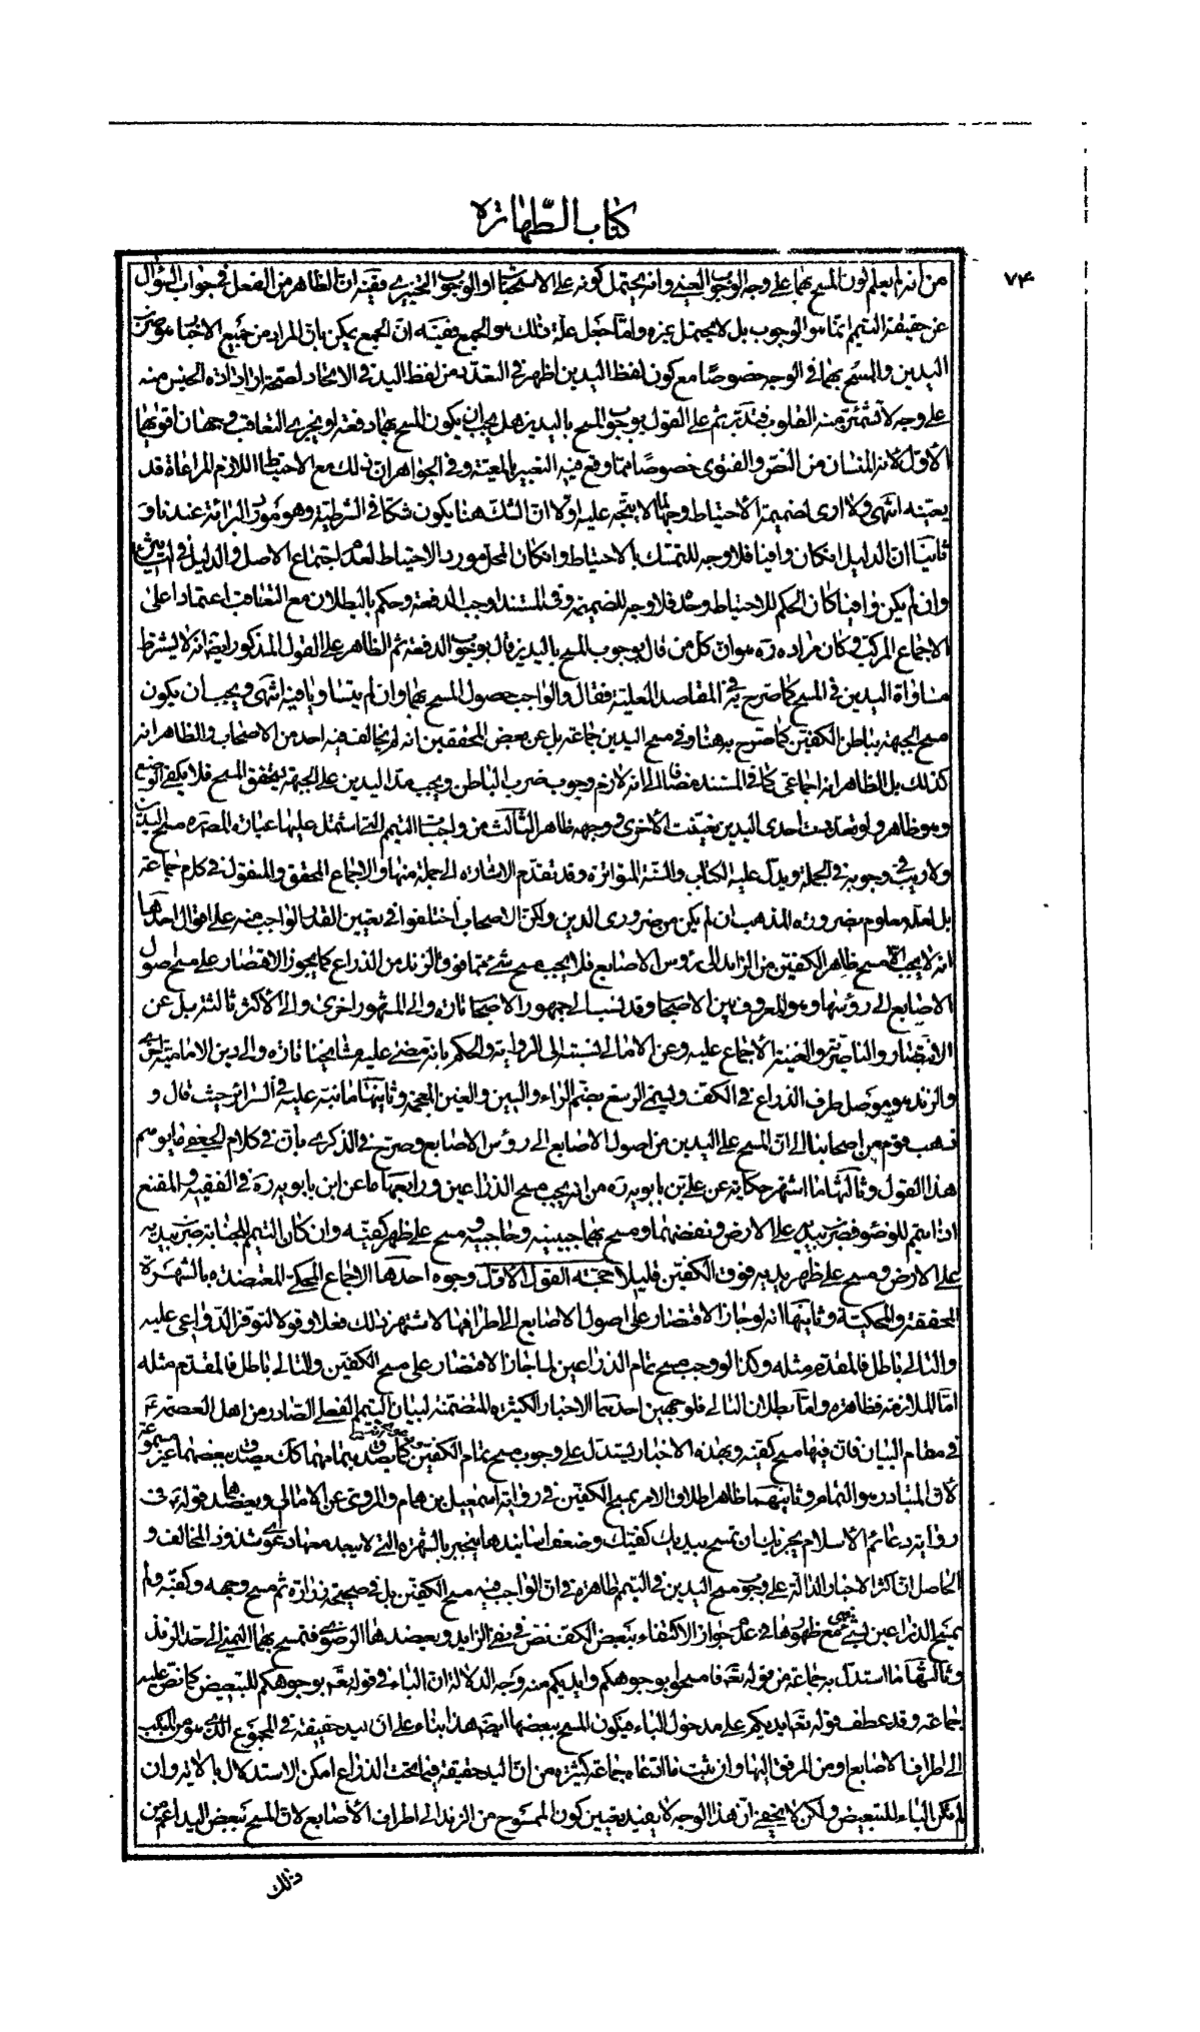 كتاب الطهارة
۷۴
من انه لم يعلم كون المسح بهما على وجه الوجوب العيني وانه يحتمل كونه على الاستحباب او الوجوب التخييري ففيه ان الظاهر من الفعل في جواب السؤال
عن حقيقة التيمم انما هو الوجوب بل لا يحتمل غيره واما جعل علة ذلك هو الجمع ففيه ان الجمع يمكن بان المراد من جميع الاخبار هو ضرب
اليدين والمسح بهما في الوجه خصوصًا مع كون لفظ اليدين اظهر في التعدد من لفظ اليد في الاتحاد لصحة ارادة الجنس منه
على وجه لا تشمئز منه القلوب فتدبر ثم على القول بوجوب المسح باليدين هل يجب ان يكون المسح بهما دفعة او يجزى التعاقب وجهان اقويهما
الأول لانه المنساق من النص والفتوى خصوصًا مما وقع فيه التعبير بالمعية وفي الجواهر ان ذلك مع الاحتياط اللازم المراعاة قد
يعينه انتهى ولا ارى لضميمة الأحتياط وجها لانه يتجه عليه اولا ان الشك هنا يكون شكا في الشرطية وهو مورد البرائة عندنا و
ثانيا ان الدليل ان كان وافيا فلا وجه للتمسك بالاحتياط وان كان المحل مورد الاحتياط لعدم اجتماع الاصل والدليل في
وان لم يكن وافيا كان الحكم للاحتياط وحده فلا وجه للضميمة وفي المستند اوجب الدفعة وحكم بالبطلان مع التعاقب اعتمادا على
الاجماع المركب وكان مراده ره هو ان كل من قال بوجوب المسح باليدين قال بوجوب الدفعة ثم الظاهر على القول المذكور ايضا انه لا يشترط
مساواة اليدين في المسح كما صرح به في المقاصد العلية فقال والواجب حصول المسح بهما وان لم يتساويا فيه انتهى ويجب ان يكون
مسح الجبهة بباطن الكفين كما صرح به هنا وفي مسح اليدين جماعة بل عن بعض المحققين انه لم يخالف فيه احد من الاصحاب والظاهر انه
كذلك بل الظاهر انه اجماعي كما في المستند مضافا الى انه لازم وجوب ضرب الباطن ويجب مد اليدين على الجبهة ليتحقق المسح فلا يكفي الوضع
وهو ظاهر ولو تعذرت احدى اليدين تعينت الأخرى ووجهه ظاهر الثالث من واجبات التيمم التي اشتمل عليها عبارة المصره مسح اليدين
ولا ريب في وجوبه في الجملة ويدل عليه الكتاب والسنة المتواترة وقد تقدم الاشارة الى جملة منها والاجماع المحقق والمنقول في كلام جماعة
بل لعله معلوم بضرورة المذهب ان لم يكن من ضروري الدين ولكن الاصحاب اختلفوا في تعيين القدر الواجب منه على اقوال احدها
انه لا يجب الا مسح ظاهر الكفين من الزند الى رؤس الاصابع فلا يجب مسح شيء مما فوق الزند من الذراع كما يجوز الاقتصار على مسح اصول
الاصابع الى رؤسها وهو المعروف بين الاصحاب وقد نسب الى جمهور الاصحاب تارة والى المشهور اخرى والى الاكثر ثالثة بل عن
الانتصار والناصرية والغنية الأجماع عليه وعن الامالي نسبته الى الرواية والحكم بانه مضى عليه مشايخنا تارة والى دين الامامية اخرى
والزند هو موصل طرف الذراع في الكف ويسمى الرسغ بضم الراء والسين والغين المعجمة وثانيها ما نبه عليه في السرائر حيث قال و
ذهب قوم من اصحابنا الى ان المسح على اليدين من اصول الاصابع الى رؤس الاصابع وصرح في الذكرى بان في كلام الجعفي ما يوهم
هذا القول وثالثها ما اشتهر حكايته عن علي بن بابويه ره من انه يجب مسح الذراعين ورابعها ما عن ابن بابويه ره في الفقيه والمقنع
اذا تيمم للوضوء ضرب بيديه على الارض ونفضهما ومسح بهما جبينيه وحاجبيه ومسح على ظهر كفيه وان كان التيمم للجنابة ضرب بيديه
على الارض ومسح على ظهر يديه فوق الكفين قليلا حجته القول الاول وجوه احدها الاجماع المحكي المعتضدة بالشهرة
المحققة والمحكية وثانيها انه لو جاز الاقتصار على اصول الاصابع الى اطرافها لاشتهر ذلك فعلا وقولا لتوفر الدواعي عليه
والتالي باطل فالمقدم مثله وكذا لو وجب مسح تمام الذراعين لما جاز الاقتصار على مسح الكفين والتالي باطل فالمقدم مثله
اما الملازمة فظاهرة واما بطلان التالي فلوجهين احدهما الاخبار الكثيرة المتضمنة لبيان التيمم الفعلي الصادر من اهل العصمة ع
في مقام البيان فان فيها مسح كفيه وبهذه الاخبار يستدل على وجوب مسح تمام الكفين كما يصدق بتمامهما كك يصدق ببعضهما غير مسموعة
لأن المتبادر هو التمام وثانيهما ظاهر اطلاق الامر بمسح الكفين في رواية اسمعيل بن همام والمروي عن الامالي ويعضدهما قوله ع في
رواية دعائم الأسلام يجزيك ان تمسح بيديك كفيك وضعف اسانيدها ينجبر بالشهرة التي لا يبعد معها دعوى شذوذ المخالف و
الحاصل ان اكثر الاخبار الدالة على وجوب مسح اليدين في التيمم ظاهرة في ان الواجب فيه مسح الكفين بل في صحيحة زرارة ثم مسح وجهه وكفيه ولم
يمسح الذراعين بشيء فمع ظهورها في عدم جواز الاكتفاء ببعض الكف نص في نفي الزايد ويعضدها الرضوي فتمسح بهما اليمنى الى حد الزند
وثالثها ما استدل به جماعة من قوله تعه فامسحوا بوجوهكم وايديكم منه وجه الدلالة ان الباء في قوله تعه بوجوهكم للتبعيض كما نص عليه
جماعة وقد عطف قوله تعه ايديكم على مدخول الباء فيكون المسح ببعضها ايضه هذا بناء على ان اليد حقيقة في المجموع الذي هو من المنكب
الى اطراف الاصابع او من المرفق اليها وان ثبت ما ادعاه جماعة كثيرة من ان اليد حقيقة فيما تحت الذراع امكن الاستدلال بالاية وان
لم تكن الباء للتبعيض ولكن لا يخفى ان هذا الوجه لا يفيد تعيين كون الممسوح من الزند الى اطراف الأصابع لان المسح ببعض اليد اعم من
ذلك